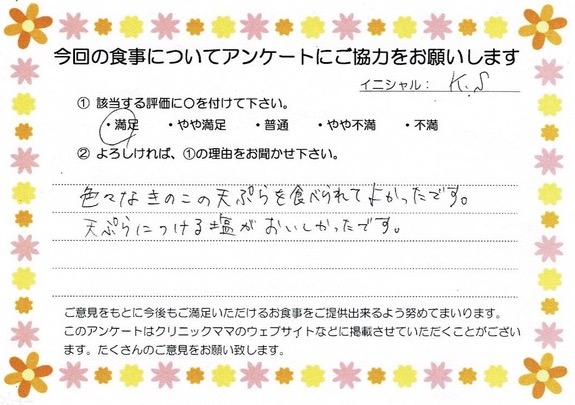 今回の食事についてアンケートにご協力をお願いします
イニシャル: K.S
① 該当する評価に○を付けて下さい。
・満足 ・やや満足 ・普通 ・やや不満 ・不満
② よろしければ、①の理由をお聞かせ下さい。
色々なきのこの天ぷらを食べられてよかったです。
天ぷらにつける塩がおいしかったです。
ご意見をもとに今後もご満足いただけるお食事をご提供出来るよう努めてまいります。
このアンケートはクリニックママのウェブサイトなどに掲載させていただくことがござい
ます。たくさんのご意見をお願い致します。